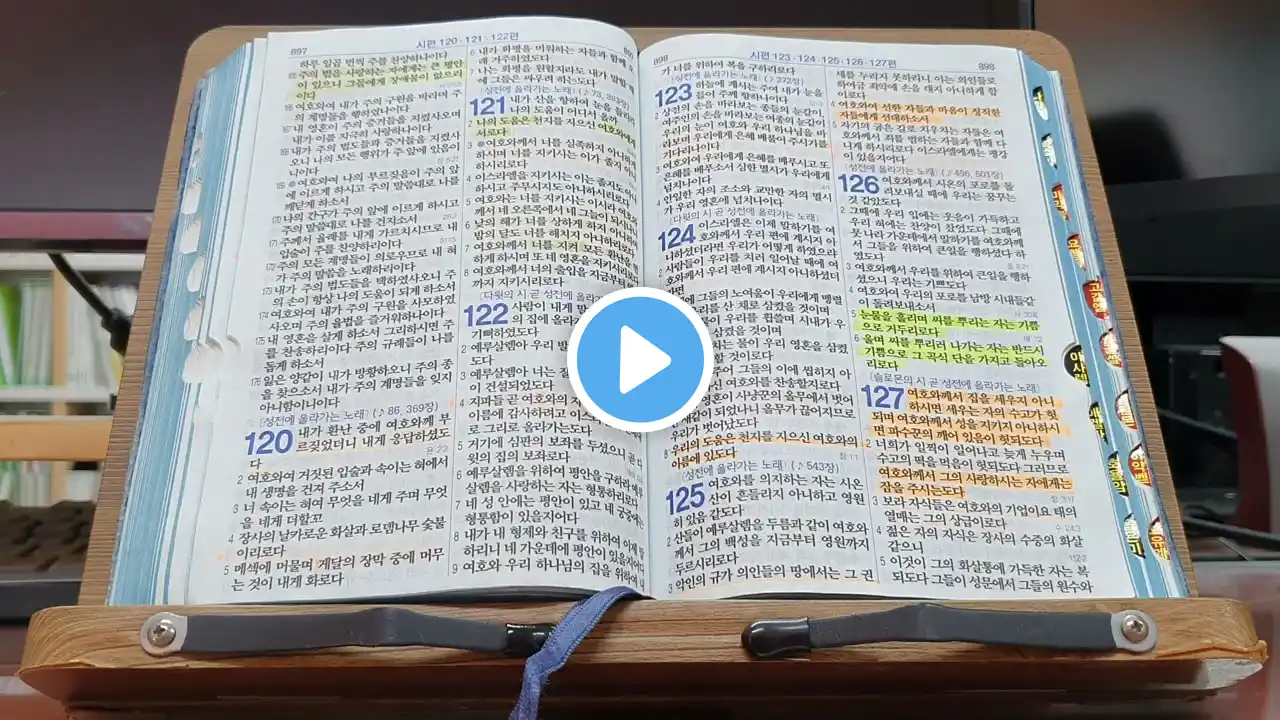 897
시편 120·121·122편
하루 일곱 번씩 주를 찬양하나이다
165 주의 법을 사랑하는 자에게는 큰 평안
이 있으니 그들에게 장애물이 없으리
이다
166 여호와여 내가 주의 구원을 바라며 주
의 계명들을 행하였나이다
167 내 영혼이 주의 증거들을 지켰사오며
내가 이를 지극히 사랑하나이다
168 내가 주의 법도들과 증거들을 지켰사
오니 나의 모든 행위가 주 앞에 있음이
니이다
169 여호와여 나의 부르짖음이 주의 앞
에 이르게 하시고 주의 말씀대로 나를
깨닫게 하소서
170 나의 간구가 주의 앞에 이르게 하시고
주의 말씀대로 나를 건지소서
171 주께서 율례를 내게 가르치시므로 내
입술이 주를 찬양하리이다
172 주의 모든 계명들이 의로우므로 내 혀
가 주의 말씀을 노래하리이다
173 내가 주의 법도들을 택하였사오니 주
의 손이 항상 나의 도움이 되게 하소서
174 여호와여 내가 주의 구원을 사모하였
사오며 주의 율법을 즐거워하나이다
175 내 영혼을 살게 하소서 그리하시면 주
를 찬송하리이다 주의 규례들이 나를
돕게 하소서
176 잃은 양같이 내가 방황하오니 주의 종
을 찾으소서 내가 주의 계명들을 잊지
아니함이니이다
[성전에 올라가는 노래] (♪ 86, 369장)
120 내가 환난 중에 여호와께 부
르짖었더니 내게 응답하셨도
다
2 여호와여 거짓된 입술과 속이는 혀에서
내 생명을 건져 주소서
3 너 속이는 혀여 무엇을 네게 주며 무엇
을 네게 더할꼬
4 장사의 날카로운 화살과 로뎀나무 숯불
이리로다
5 메섹에 머물며 게달의 장막 중에 머무
는 것이 내게 화로다
6 내가 화평을 미워하는 자들과 함께
래 거주하였도다
7 나는 화평을 원할지라도 내가 말할 때
에 그들은 싸우려 하는도다
[성전에 올라가는 노래] (♪ 73, 383장)
121 내가 산을 향하여 눈을 들리라
나의 도움이 어디서 올까
2 나의 도움은 천지를 지으신 여호와에
서로다
3 여호와께서 너를 실족하지 아니하게
하시며 너를 지키시는 이가 졸지 아니
하시리로다
4 이스라엘을 지키시는 이는 졸지도 아니
하시고 주무시지도 아니하시리로다
5 여호와는 너를 지키시는 이시라 여호와
께서 네 오른쪽에서 네 그늘이 되시나니
6 낮의 해가 너를 상하게 하지 아니하며
밤의 달도 너를 해치지 아니하리로다
7 여호와께서 너를 지켜 모든 환난을 면
하게 하시며 또 네 영혼을 지키시리로다
8 여호와께서 너의 출입을 지금부터
까지 지키시리로다
[다윗의 시 곧 성전에 올라가는
122 사람이 내게 말
의 집에 올라
기뻐하였도다
2 예루살렘아 우리 발
도다
3 예루살렘아 너는 잘
이 건설되었도다
4 지파들 곧 여호와의 지
이름에 감사하려고 이스
로 그리로 올라가는도다
5 거기에 심판의 보좌를 두셨으니 곧 다
윗의 집의 보좌로다
6 예루살렘을 위하여 평안을 구하라 예루
살렘을 사랑하는 자는 형통하리로다
7 네 성 안에는 평안이 있고 네 궁중에는
형통함이 있을지어다
8 내가 내 형제와 친구를 위하여 이제 말
하리니 네 가운데에 평안이 있을지어다
9 여호와 우리 하나님의 집을 위하여 내
898
시편 123·124·125·126·127편
898
가 너를 위하여 복을 구하리로다
[성전에 올라가는 노래] (♪ 272장)
123 하늘에 계시는 주여 내가 눈을
들어 주께 향하나이다
2 상전의 손을 바라보는 종들의 눈같이,
여주인의 손을 바라보는 여종의 눈같이
우리의 눈이 여호와 우리 하나님을 바
라보며 우리에게 은혜 베풀어 주시기를
기다리나이다
3 여호와여 우리에게 은혜를 베푸시고 또
은혜를 베푸소서 심한 멸시가 우리에게
넘치나이다
4 안일한 자의 조소와 교만한 자의 멸시
가 우리 영혼에 넘치나이다
[다윗의 시 곧 성전에 올라가는 노래]
124 이스라엘은 이제 말하기를 여
호와께서 우리 편에 계시지 아
니하셨더라면 우리가 어떻게 하였으랴
2 사람들이 우리를 치러 일어날 때에 여
호와께서 우리 편에 계시지 아니하셨더
라면
그들의 노여움이 우리에게 맹렬
리를 산 채로 삼켰을 것이며
우리를 휩쓸며 시내가 우
삼켰을 것이며
치는 물이 우리 영혼을 삼켰
할 것이로다
주어 그들의 이에 씹히지 아
신 여호와를 찬송할지로다
영혼이 사냥꾼의 올무에서 벗어
새같이 되었나니 올무가 끊어지므로
우리가 벗어났도다
8 우리의 도움은 천지를 지으신 여호와의
이름에 있도다
[성전에 올라가는 노래] (♪ 543장)
125 여호와를 의지하는 자는 시온
산이 흔들리지 아니하고 영원
히 있음 같도다
2 산들이 예루살렘을 두름과 같이 여호와
께서 그의 백성을 지금부터 영원까지
두르시리로다
3 악인의 규가 의인들의 땅에서는 그 권
세를 누리지 못하리니 이는 의인들로
하여금 죄악에 손을 대지 아니하게 함
이로다
4 여호와여 선한 자들과 마음이 정직한
자들에게 선대하소서
5 자기의 굽은 길로 치우치는 자들은 여
호와께서 죄를 범하는 자들과 함께 다
니게 하시리로다 이스라엘에게는 평강
이 있을지어다
[성전에 올라가는 노래] (♪ 496, 501장)
126 여호와께서 시온의 포로를 돌
려보내실 때에 우리는 꿈꾸는
것 같았도다
2 그때에 우리 입에는 웃음이 가득하고
우리 혀에는 찬양이 찼었도다 그때에
뭇 나라 가운데에서 말하기를 여호와께
서 그들을 위하여 큰일을 행하셨다 하
였도다
3 여호와께서 우리를 위하여 큰일을 행하
셨으니 우리는 기쁘도다
4 여호와여 우리의 포로를 남방 시내들같
이 돌려보내소서
5 눈물을 흘리며 씨를 뿌리는 자는 기쁨
으로 거두리로다
6 울며 씨를 뿌리러 나가는 자는 반드시
기쁨으로 그 곡식 단을 가지고 돌아오
리로다
[솔로몬의 시 곧 성전에 올라가는 노래]
127 여호와께서 집을 세우지 아니
하시면 세우는 자의 수고가 헛
되며 여호와께서 성을 지키지 아니하시
면 파수꾼의 깨어 있음이 헛되도다
2 너희가 일찍이 일어나고 늦게 누우며
수고의 떡을 먹음이 헛되도다 그러므로
여호와께서 그의 사랑하시는 자에게는
잠을 주시는도다
3 보라 자식들은 여호와의 기업이요 태의
열매는 그의 상급이로다
4 젊은 자의 자식은 장사의 수중의 화살
같으니
5 이것이 그의 화살통에 가득한 자는 복
되도다 그들이 성문에서 그들의 원수와